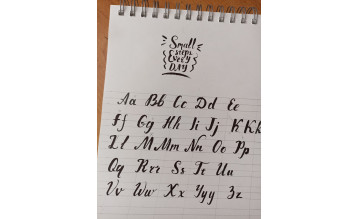 Small
steps
Every
DAY
Aa Bb Cc Dd Ee
Ff Gg Hh Ii Jj KKk
Ll MMm Nn Oo Pp
Qq Rrr Ss Tt Uu
Vv Ww Xx Yyy Zz